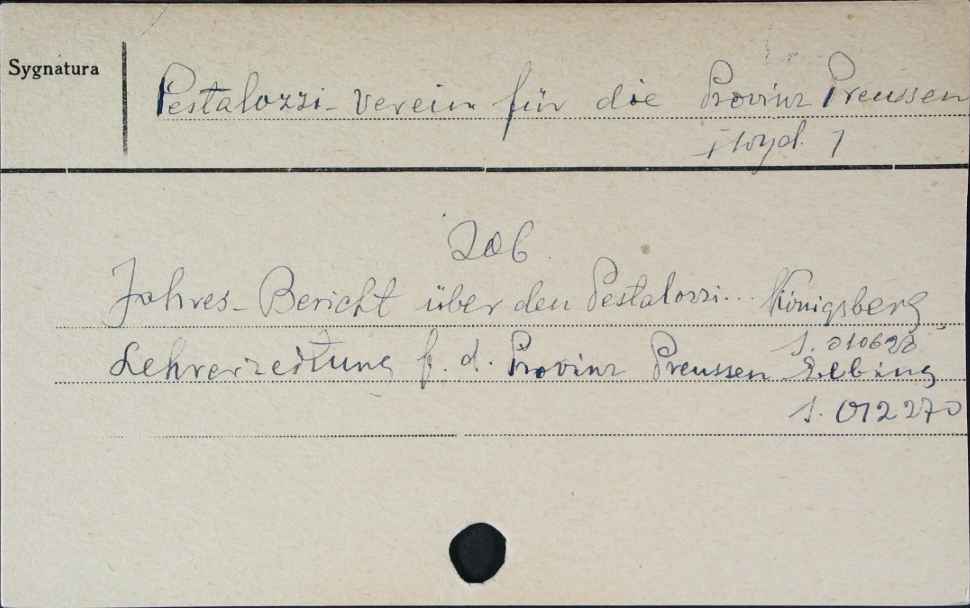 Sygnatura
Pestalozzi-Verein für die Provinz Preussen
wyd. 1
Jahres-Bericht über den Pestalozzi... Königsberg
s. 010628
Lehrerzeitung f. d. Provinz Preussen Elbing
s. 012270